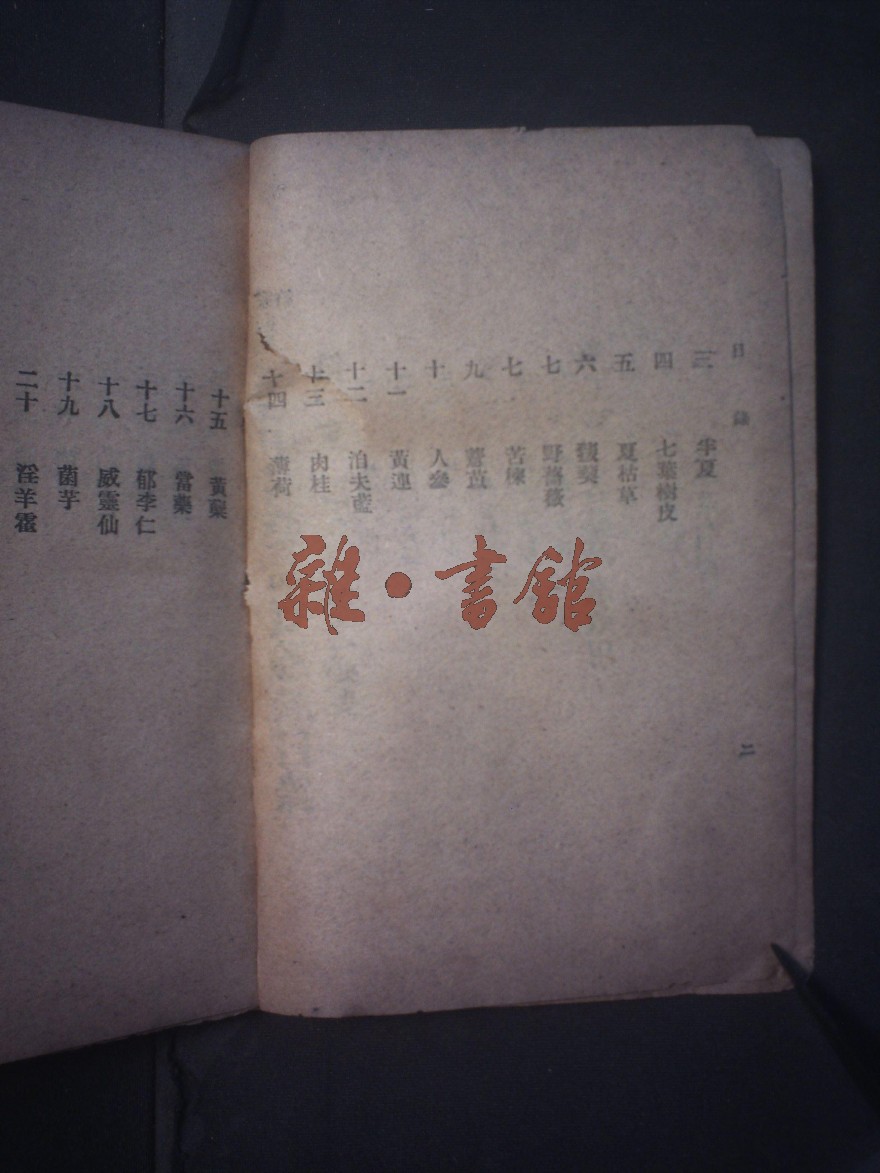 目錄
三 半夏
四 七葉樹皮
五 夏枯草
六 葵
七 野薔薇
七 苦楝
九
十 人參
十一 黃連
十二 泊夫藍
十三 肉桂
十四 薄荷
二
十五 黃蘗
十六 當藥
十七 郁李仁
十八 威靈仙
十九 菌芋
二十 淫羊霍
雜·書館